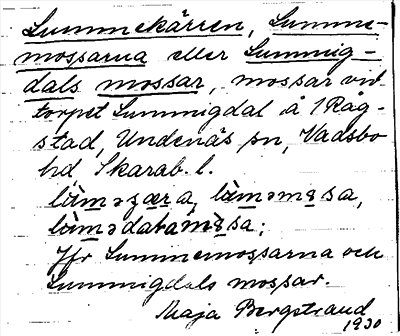 Lummekärren, Lumme-
mossarna eller Lummig-
dals mossar, mossar vid
torpet Lummigdal å 1 Råg-
stad, Undenäs sn, Vadsbo
hd Skarab. l.
Jfr Lummemossarna och
Lummigdals mossar.
Maja Bergstrand
1930